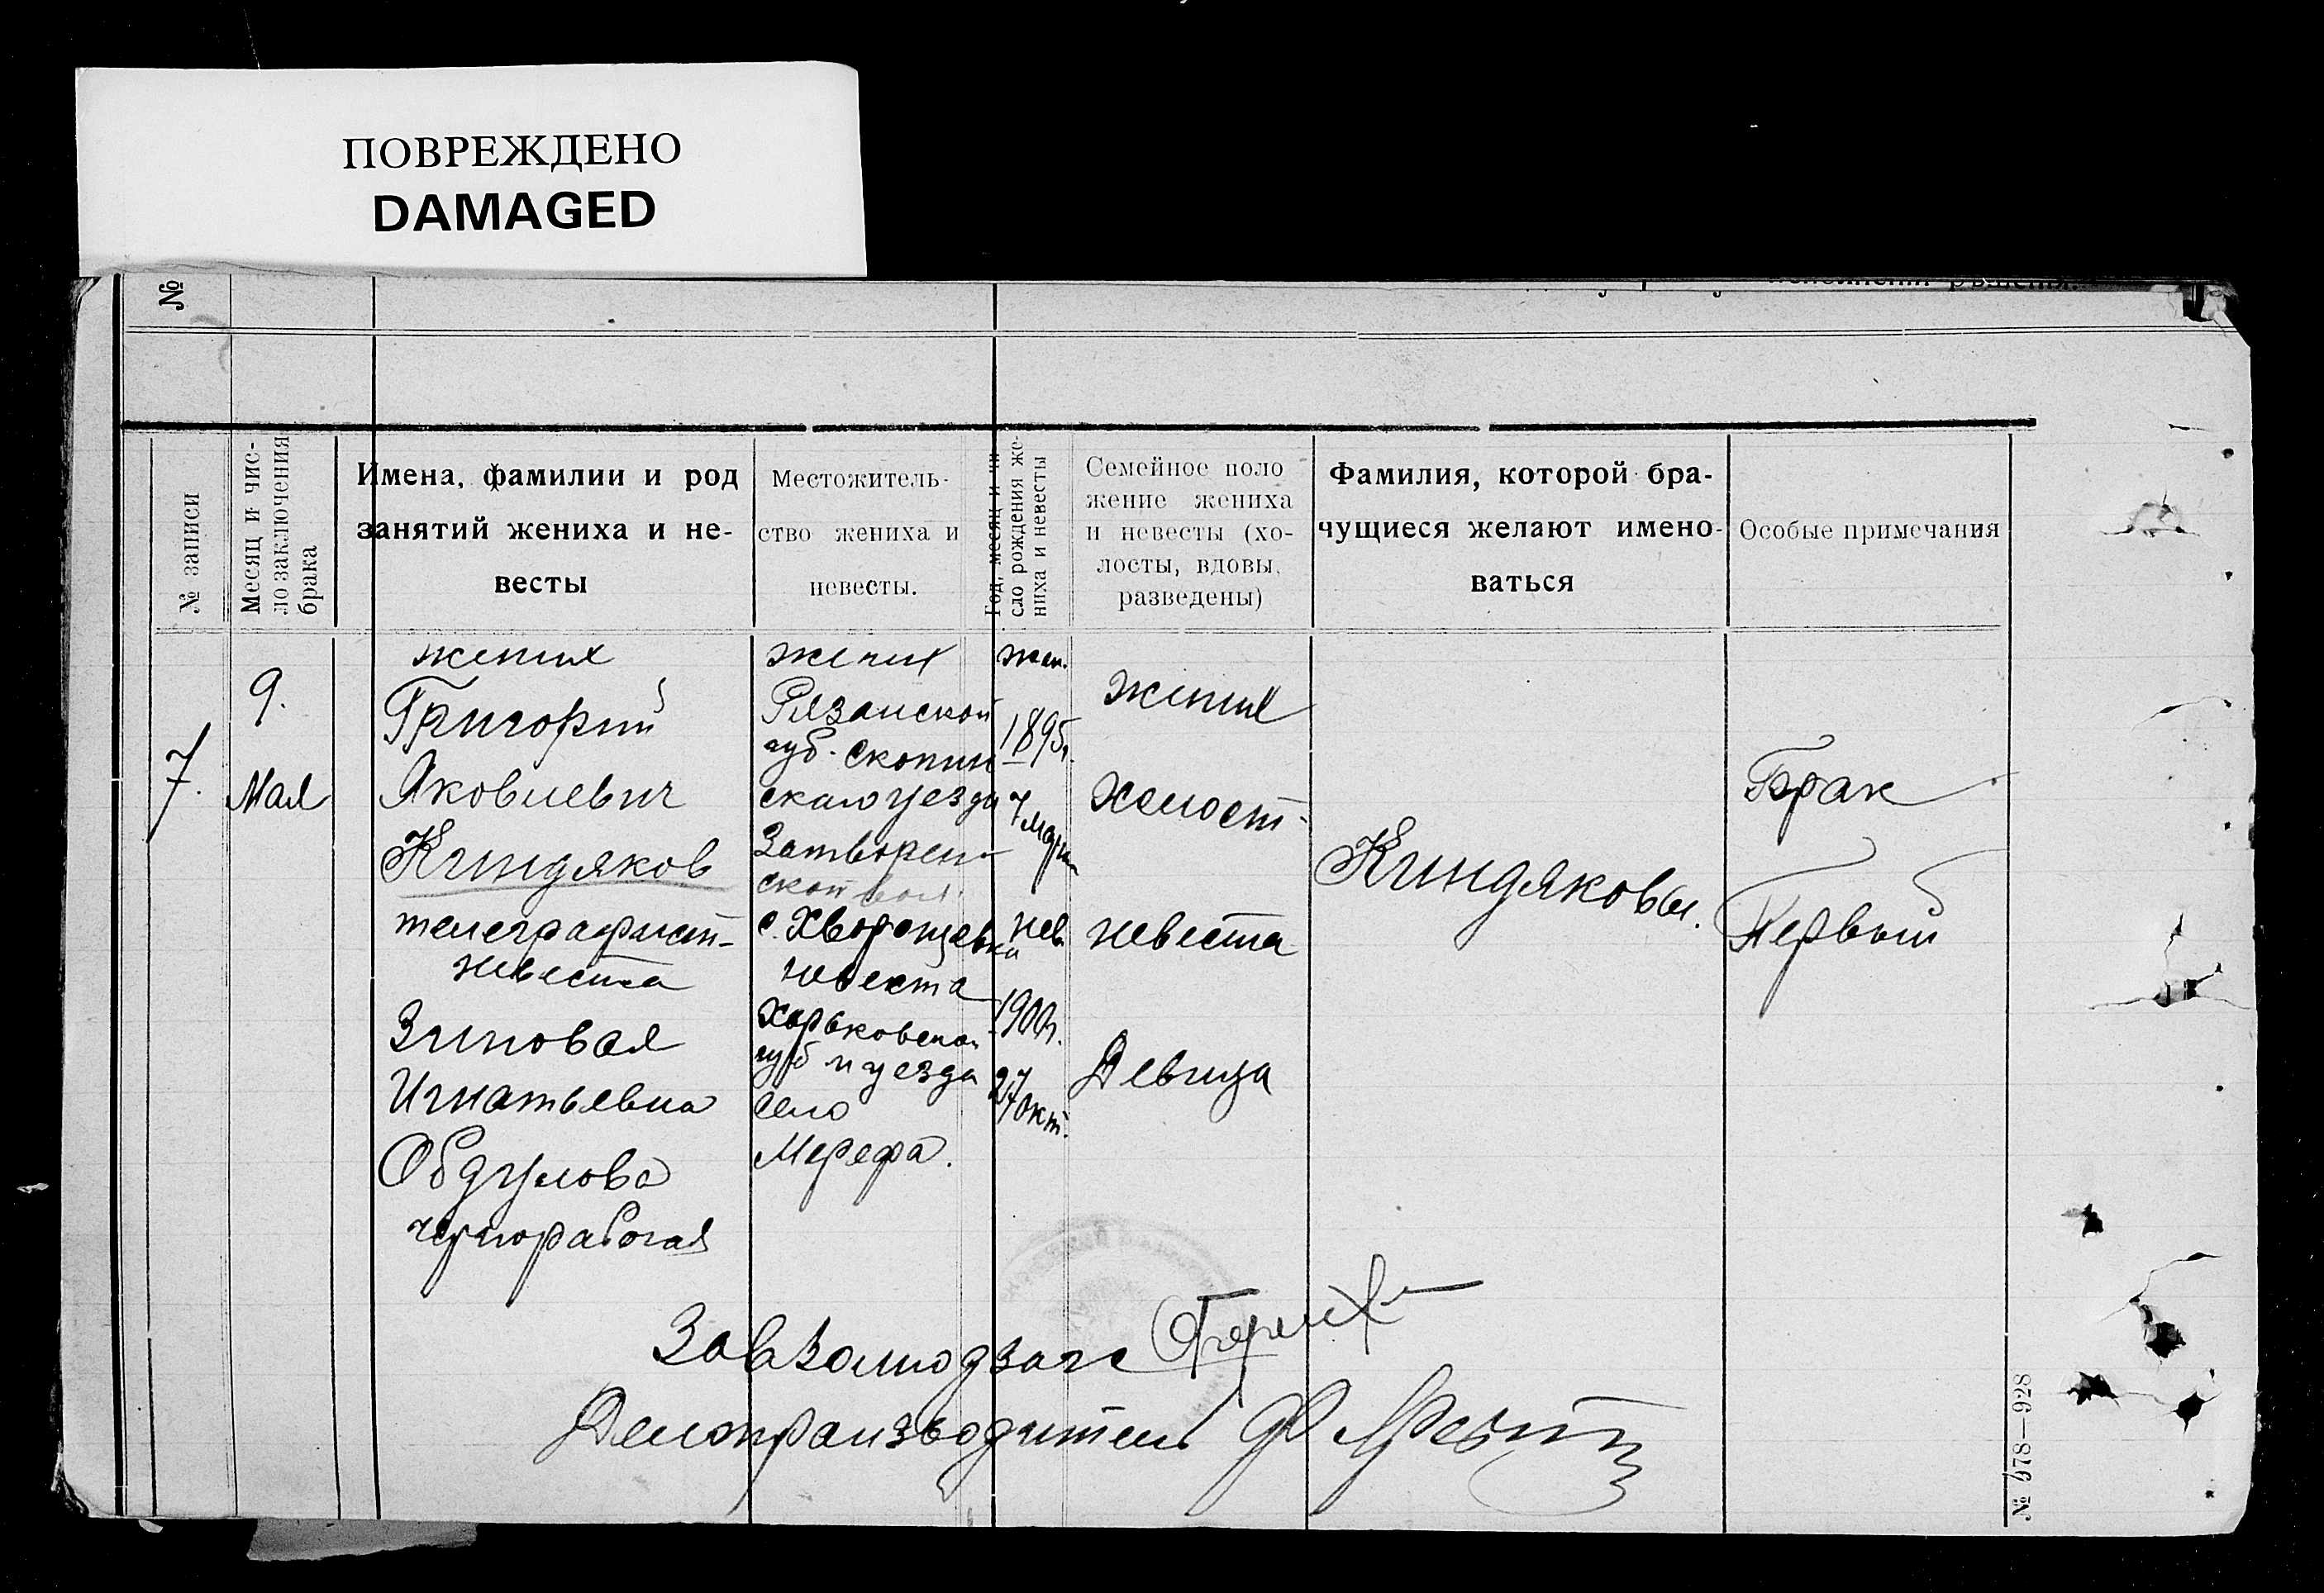 ПОВРЕЖДЕНО
DAMAGED
№
№ записи
Месяц и чис-
ло заключения
брака
Имена, фамилии и род
занятий жениха и не-
весты
Местожитель-
ство жениха и
невесты.
Год, месяц и чи
сло рождения же-
ниха и невесты
Семейное поло
жение жениха
и невесты (хо-
лосты, вдовы,
разведены)
Фамилия, которой бра-
чущиеся желают имено-
ваться
Особые примечания
7.
9.
Мая
жених
Григорий
Яковлевич
Киндяков
телеграфист-
невеста
Зиновая
Игнатьевна
Обдулова
чернорабочая
жених
Рязанской
губ. Скопин
скаго уезда
Затворен-
ской вол.
с. Хворощевка
невеста
Харьковской
губ и уезда
село
Мерефа.
жен.
1895г.
7 март
нев.
1900г.
27 окт.
жених
холост-
невеста
Девица
Киндяковы.
Брак
Первый
Делопроизводитель
№ 978—928